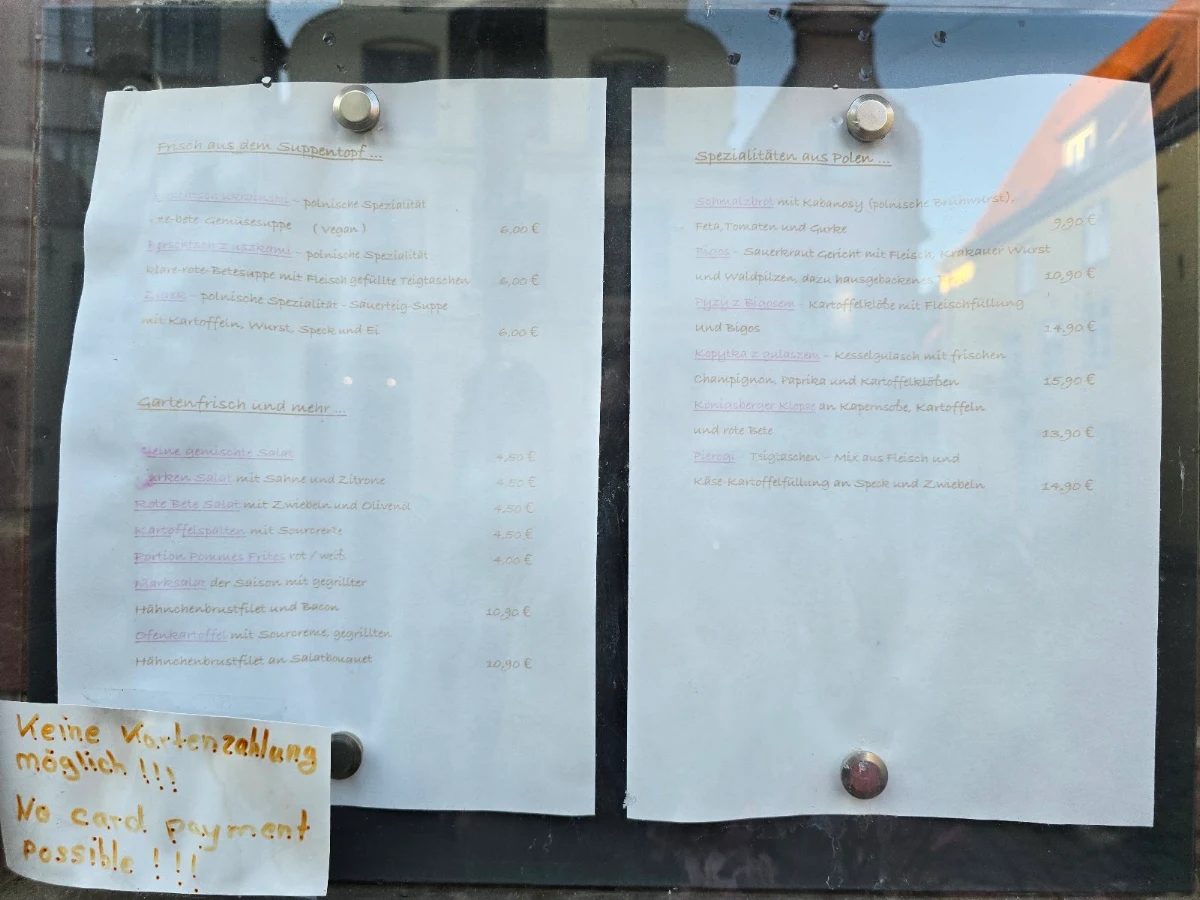 Frisch aus dem Suppentopf ...
- polnische Spezialität
ee-bete-Gemüsesuppe (vegan) 6,00 €
Barschtsch z uszkami - polnische Spezialität
klare-rote-Betesuppe mit Fleisch gefüllte Teigtaschen 6,00 €
- polnische Spezialität - Sauerteig-Suppe
mit Kartoffeln, Wurst, Speck und Ei 6,00 €
Gartenfrisch und mehr ...
kleine gemischte Salat 4,50 €
Gurken Salat mit Sahne und Zitrone 4,50 €
Rote Bete Salat mit Zwiebeln und Olivenöl 4,50 €
Kartoffelspalten mit Sourcreme 4,50 €
Portion Pommes Frites rot / weiß 4,00 €
Marksalat der Saison mit gegrillter
Hähnchenbrustfilet und Bacon 10,90 €
Ofenkartoffel mit Sourcreme, gegrillten
Hähnchenbrustfilet an Salatbouquet 10,90 €
Keine Kartenzahlung
möglich !!!
No card payment
possible !!!
Spezialitäten aus Polen ...
Schmalzbrot mit Kabanosy (polnische Brühwurst),
Feta, Tomaten und Gurke 9,90 €
Bigos - Sauerkraut Gericht mit Fleisch, Krakauer Wurst
und Waldpilzen, dazu hausgebackenes 10,90 €
Pyzy z Bigosem - Kartoffelklöße mit Fleischfüllung
und Bigos 14,90 €
Kopytka z gulaszem - Kesselgulasch mit frischen
Champignon, Paprika und Kartoffelklößen 15,90 €
Königsberger Klopse an Kapernsoße, Kartoffeln
und rote Bete 13,90 €
Pierogi - Teigtaschen - Mix aus Fleisch und
Käse-Kartoffelfüllung an Speck und Zwiebeln 14,90 €